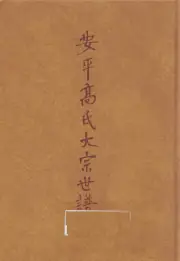 安平高氏大宗世譜